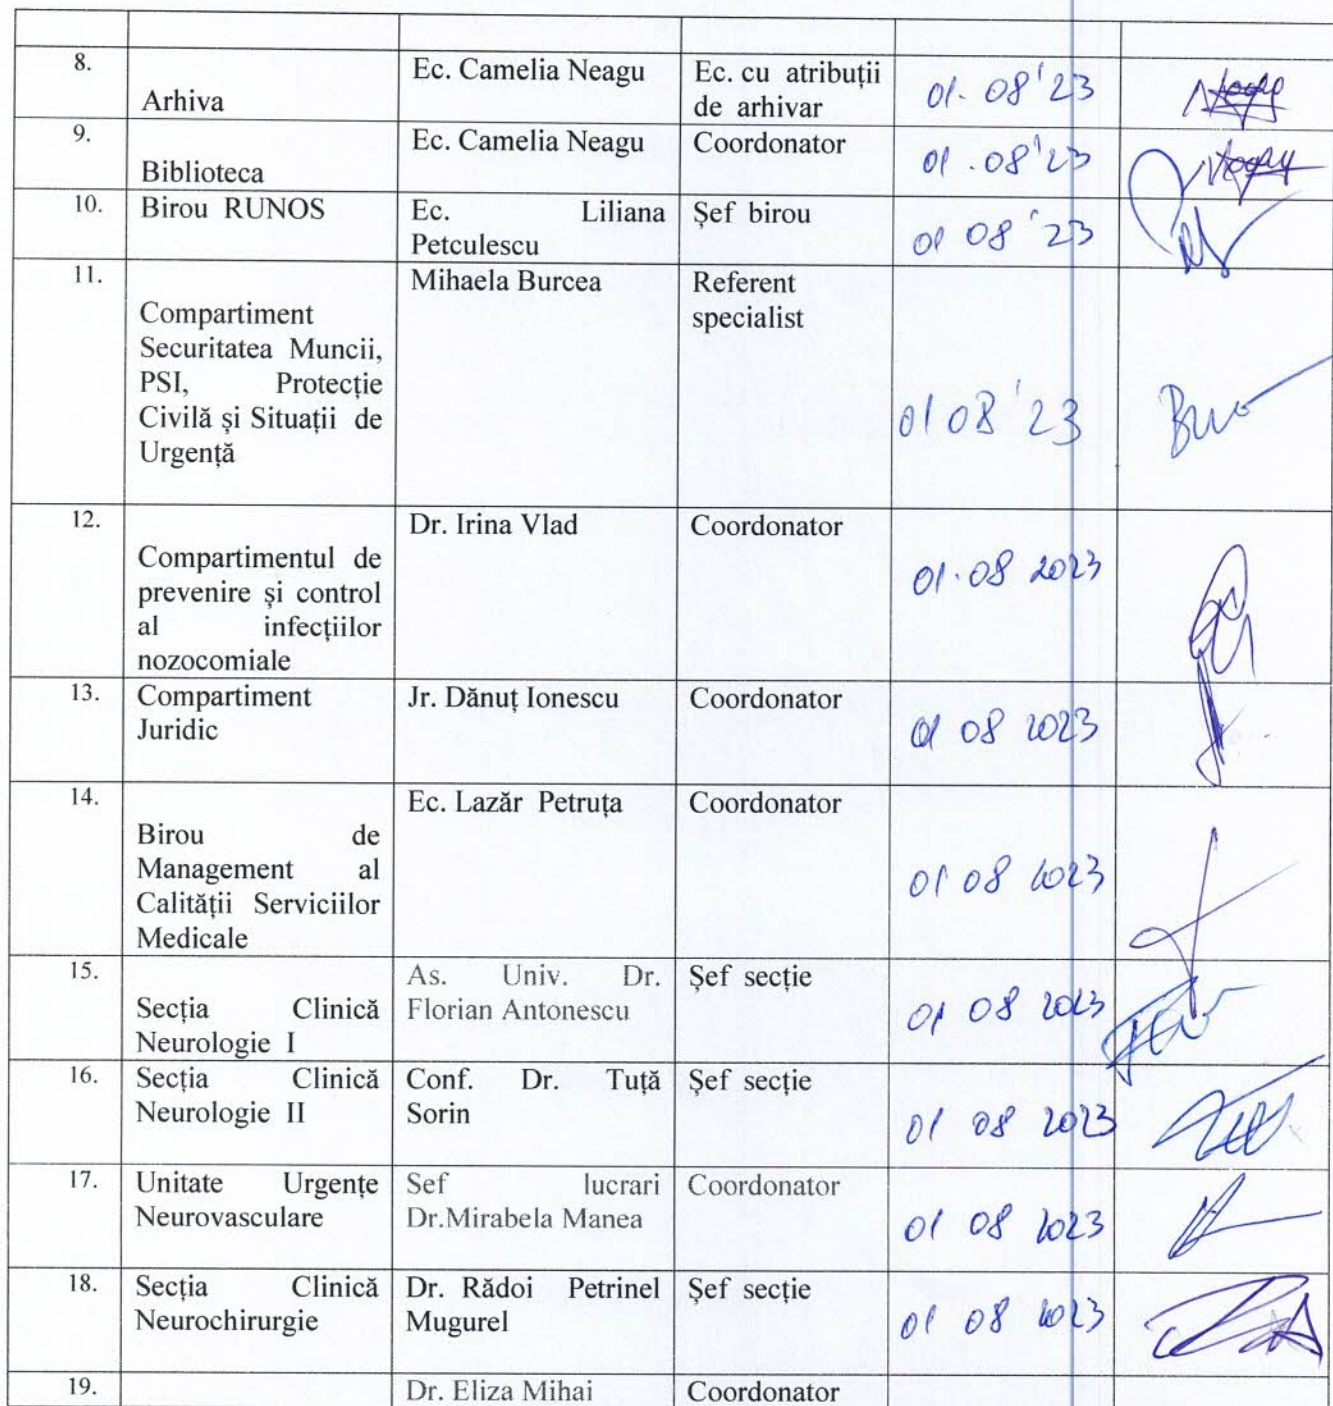 8.
Arhiva
Ec. Camelia Neagu
Ec. cu atribuții
de arhivar
01.08'23
9.
Biblioteca
Ec. Camelia Neagu
Coordonator
01.08'23
10.
Birou RUNOS
Ec. Liliana
Petculescu
Șef birou
01 08'23
11.
Compartiment
Securitatea Muncii,
PSI, Protecție
Civilă și Situații de
Urgență
Mihaela Burcea
Referent
specialist
01 08'23
12.
Compartimentul de
prevenire și control
al infecțiilor
nozocomiale
Dr. Irina Vlad
Coordonator
01.08 2023
13.
Compartiment
Juridic
Jr. Dănuț Ionescu
Coordonator
01 08 2023
14.
Birou de
Management al
Calității Serviciilor
Medicale
Ec. Lazăr Petruța
Coordonator
01 08 2023
15.
Secția Clinică
Neurologie I
As. Univ. Dr.
Florian Antonescu
Șef secție
01 08 2023
16.
Secția Clinică
Neurologie II
Conf. Dr. Tuță
Sorin
Șef secție
01 08 2023
17.
Unitate Urgențe
Neurovasculare
Sef lucrari
Dr.Mirabela Manea
Coordonator
01 08 2023
18.
Secția Clinică
Neurochirurgie
Dr. Rădoi Petrinel
Mugurel
Șef secție
01 08 2023
19.
Dr. Eliza Mihai
Coordonator